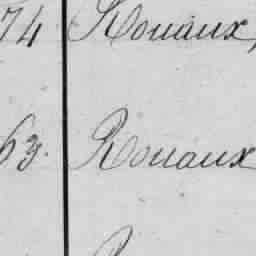 74 Rouaux,
63. Rouaux